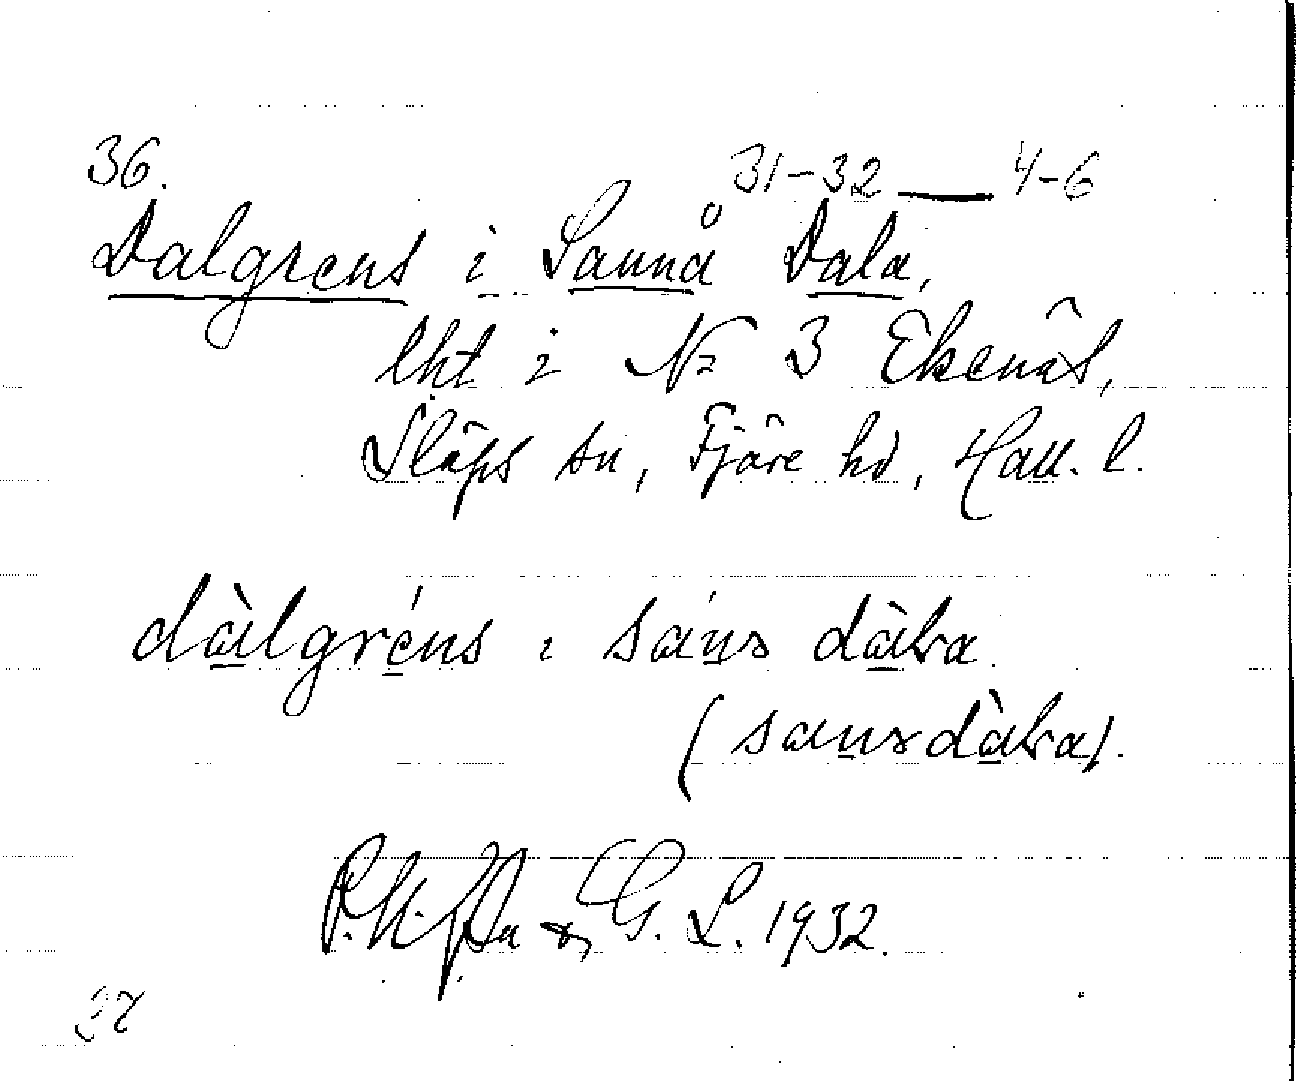 36. 31-32 — 4-6
Dalgrens i Sannå Dala,
lht i № 3 Ekenäs,
Släps sn, Fjäre hd, Hall. l.
dàlgréns i sáns dàLa.
(sansdàLa).
& G. L. 1932.
27